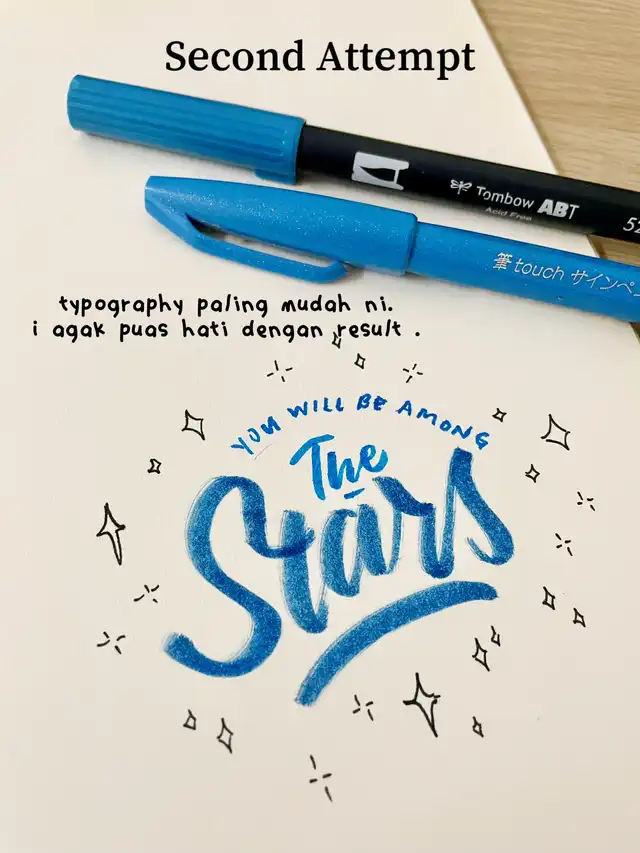 Second Attempt
Tombow ABT
Acid Free
52
筆touch サインペ
typography paling mudah ni.
i agak puas hati dengan result.
YOU WILL BE AMONG
The
Stars